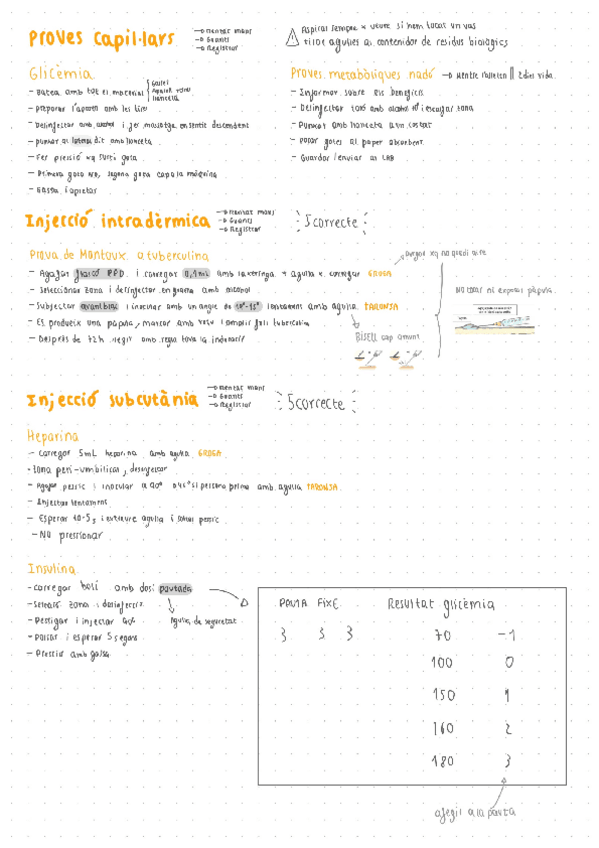 Proves capil·lars
→ Rentat mans
→ Guants
→ Registrar
⚠ Aspirar sempre x veure si hem tocat un vas
tirar agulles al contenidor de residus biològics
Glicèmia
- Batea amb tot el material
lanceta
- Preparar l'aparell amb les tires
- Desinfectar amb alcohol i fer massatge en sentit descendent
- punxar al lateral dit amb lanceta
- Fer pressió xq surti gota
- Primera gota NO, segona gota cap a la màquina
- Gassa i apretar
Proves metabòliques nadó → Mentre l'alleten || 2 dies vida
- Informar sobre els beneficis
- Desinfectar taló amb alcohol i eixugar zona
- Punxar amb lanceta a un costat
- Posar gotes al paper absorbent
- Guardar/enviar al LAB
Injecció intradèrmica
→ Rentat mans
→ Guants
→ Registrar
5 correcte
Prova de Mantoux a tuberculina
purgar xq no quedi aire
- Agafar flascó PPD i carregar 0,1 mL amb la xeringa → agulla x carregar GROGA
- Seleccionar zona i desinfectar en general amb alcohol
- Subjectar avantbraç i inocular amb un angle de 10º-15º lentament amb agulla TARONJA
- Es produeix una pàpula, marcar amb retu i omplir full tuberculina
- Després de 72h llegir amb regla tova la induració
NO tocar ni exposar pàpula
BISELL cap amunt
Injecció subcutània
→ Rentat mans
→ Guants
→ Registrar
5 correcte
Heparina
- carregar 5mL heparina amb agulla GROGA
- zona peri-umbilical, desinfectar
- Agafar pessic i inocular a 90º o 45º si persona prima amb agulla TARONJA
- Injectar lentament
- Esperar 10-5 s i extreure agulla i soltar pessic
- NO pressionar
Insulina
- carregar boli amb dosi pautada
- Selecció zona i desinfecció
- Pessigar i injectar
Agulla de seguretat
- Parar i esperar 5 segons
- Pressió amb gassa
PAUTA FIXE
3 3 3
Resultat glicèmia
70 -1
100 0
150 1
160 2
180 3
afegir a la pauta